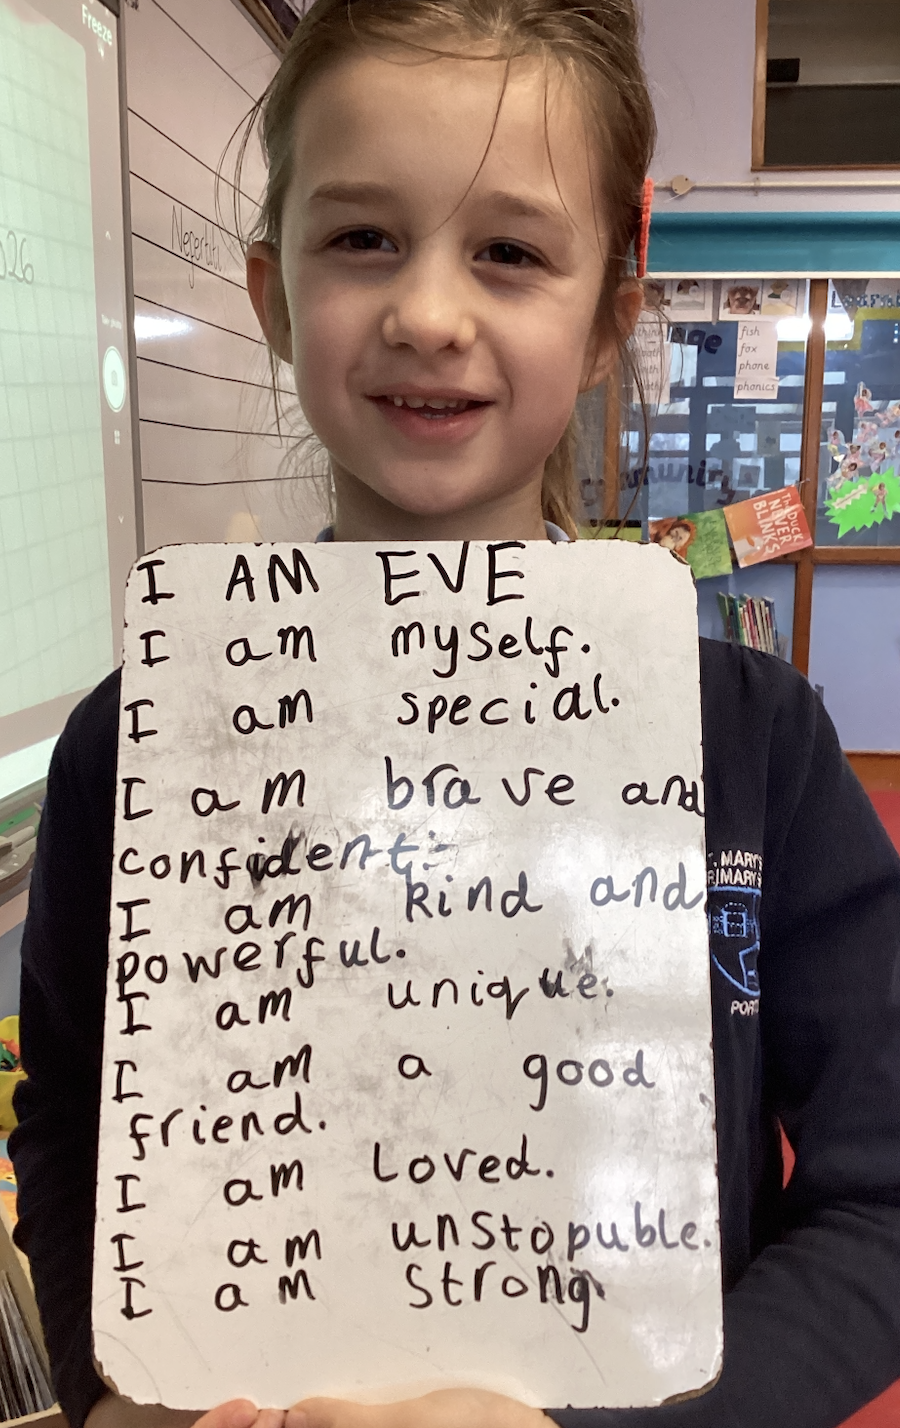 Freeze
026
I AM EVE
I am myself.
I am special.
I am brave and
confident.
I am kind and
powerful.
I am unique.
I am a good
friend.
I am loved.
I am unstopuble.
I am strong.
fish
fox
phone
phonics
THE DUCK
NEVER
BLINKS
T. MARY'S
RIMARY S
PORT